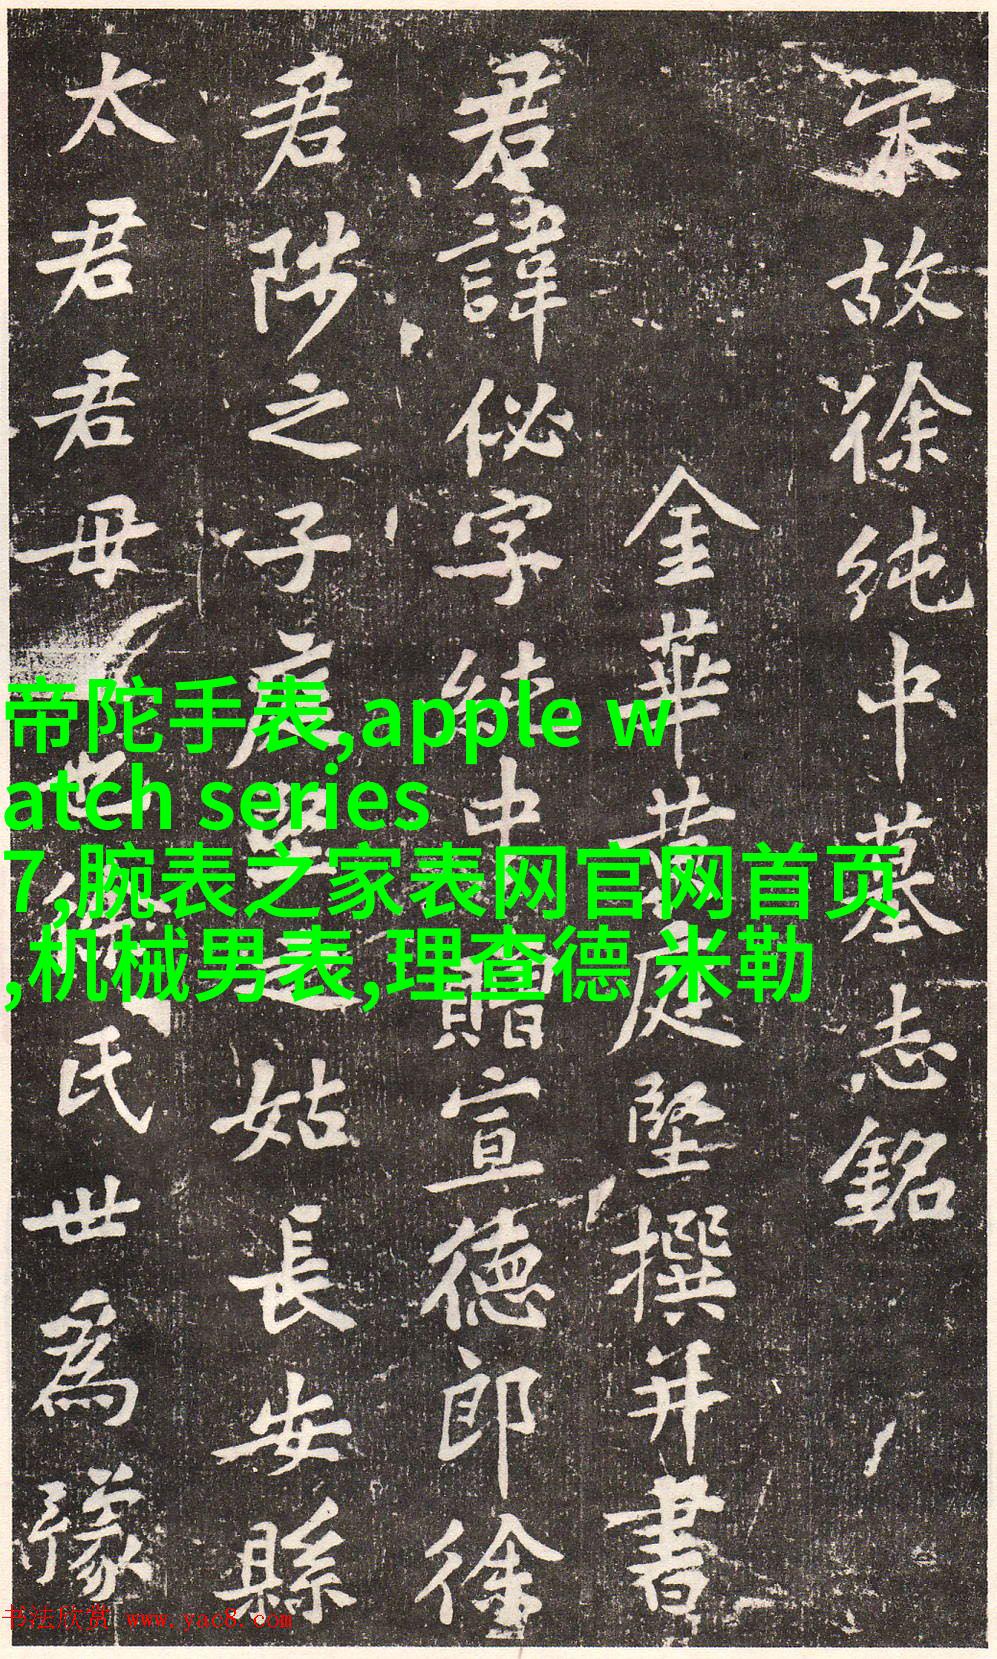 宋故徐純中墓志銘
金華黃庭堅撰并書
君諱佖字純中贈宣德郎徐
君陟之子之姑長安縣
太君君母氏世為豫
帝陀手表,apple w
atch series
7,腕表之家表网官网首页
,机械男表,理查德 米勒
书法欣赏 www.yac8.com